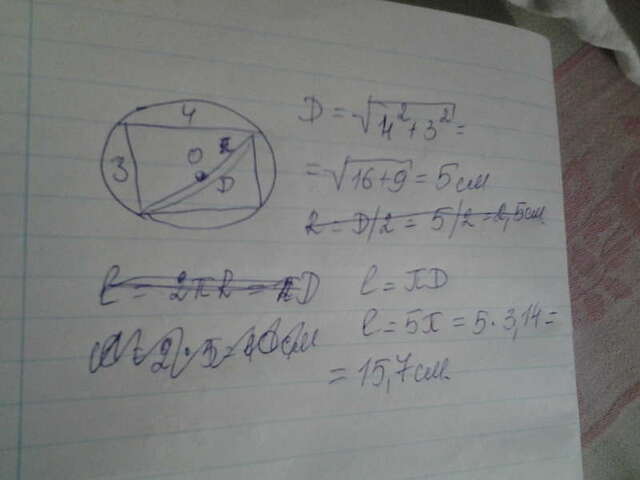 4
3
O
R
D
D = √4² + 3² =
= √16+9 = 5 см
R = D/2 = 5/2 = 2,5см
l = 2πR = πD
l = πD
l = 5π = 5 · 3,14 =
= 15,7 см.